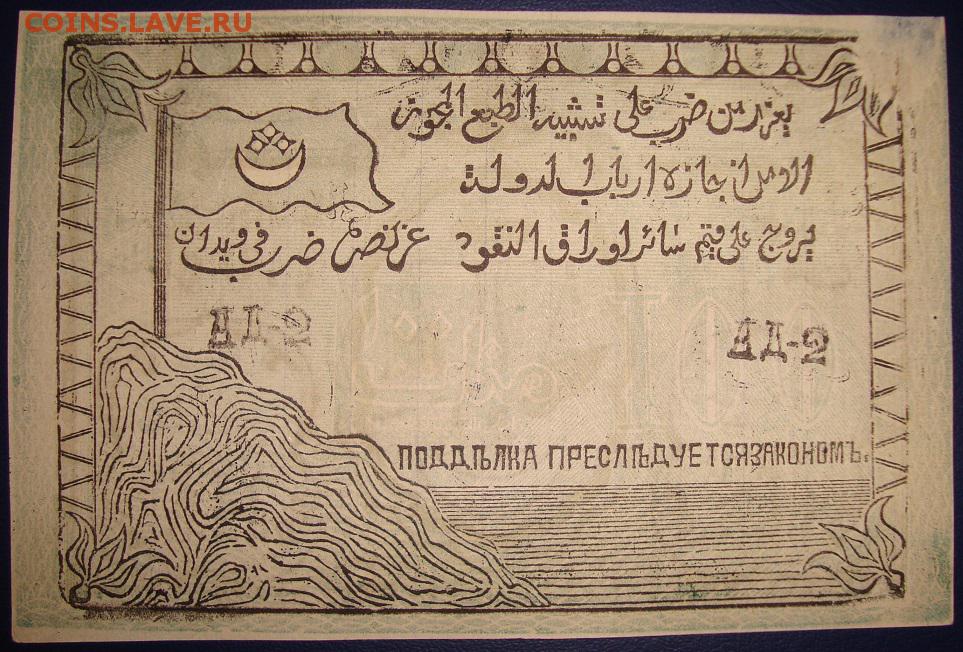 COINS.LAVE.RU
يعزر من ضرب على تشبيه الطبع المجوزة
الا من اجازه ارباب الدولة
يروج على قيم سائر اوراق النقود
ضرب في ويدان
АД-2
АД-2
ПОДДѢЛКА ПРЕСЛѢДУЕТСЯ ЗАКОНОМЪ.
COINS.LAVE.RU